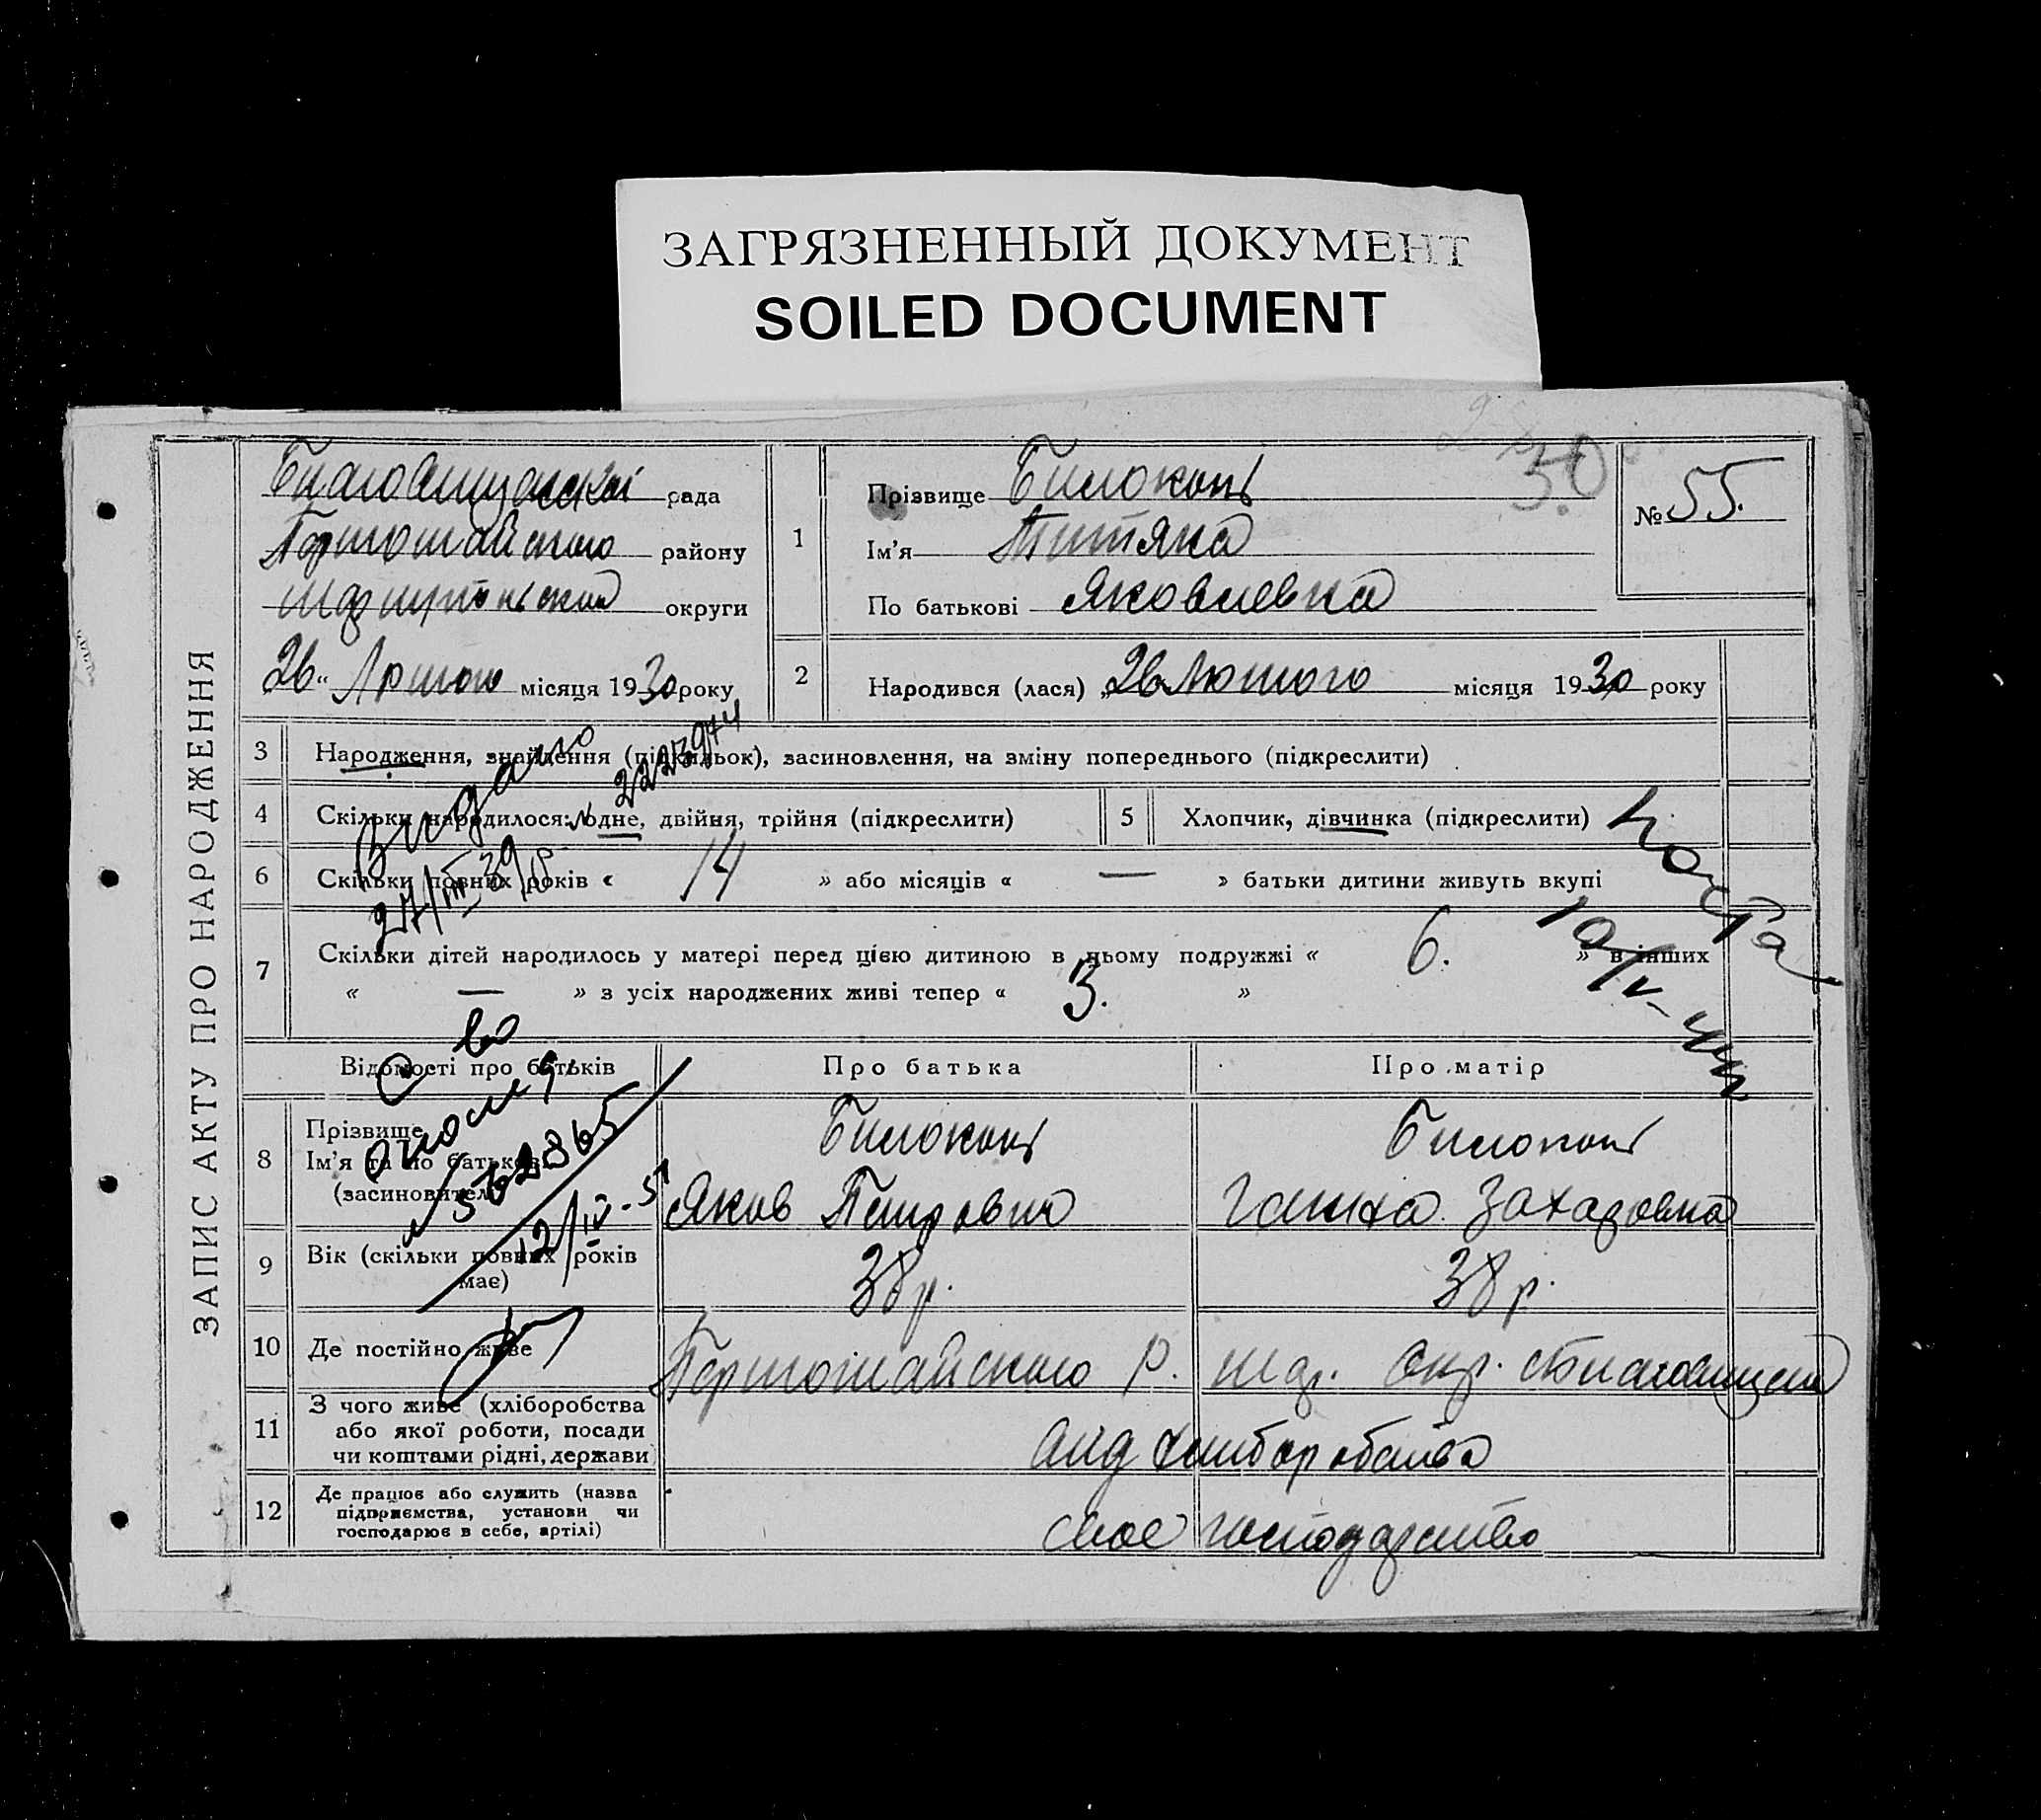 ЗАГРЯЗНЕННЫЙ ДОКУМЕНТ
SOILED DOCUMENT
ЗАПИС АКТУ ПРО НАРОДЖЕННЯ
рада
району
округи
26 Лютого місяця 1930 року
30
№ 55.
1
Прізвище Билоконь
Ім'я Титяна
По батькові Яковлевна
2
Народився (лася) „26 Лютого місяця 1930 року
3 Народження, знайдення (підкидьок), засиновлення, на зміну попереднього (підкреслити)
4 Скільки народилося: одне, двійня, трійня (підкреслити)
5 Хлопчик, дівчинка (підкреслити)
6 Скільки повних років « 14 » або місяців « — » батьки дитини живуть вкупі
7 Скільки дітей народилось у матері перед цією дитиною в цьому подружжі « 6. » в інших
« — » з усіх народжених живі тепер « 3. »
Видано
27/III 39 р
Відомості про батьків
Про батька
Про матір
8 Прізвище
Ім'я та по батькові
(засиновител
Билоконь
Яков Петрович
Билоконь
Ганна Захаровна
562865
12/IV-51
9 Вік (скільки повних років
має)
38 р.
38 р.
10 Де постійно живе
Першомайского р. окр.
11 З чого живе (хліборобства
або якої роботи, посади
чи коштами рідні, держави
від хлиборобства
12 Де працює або служить (назва
підприємства, установи чи
господарює в себе, артілі)
свое господарство